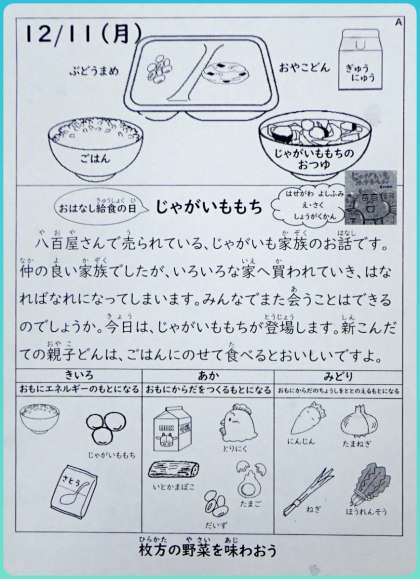 A
12/11(月)
ぶどうまめ
おやこどん
ぎゅう
にゅう
ごはん
じゃがいももちの
おつゆ
おはなし給食の日
じゃがいももち
はせがわ よしふみ
え・さく
しょうがくかん
八百屋さんで売られている、じゃがいも家族のお話です。
仲の良い家族でしたが、いろいろな家へ買われていき、はな
ればなれになってしまいます。みんなでまた会うことはできる
のでしょうか。今日は、じゃがいももちが登場します。新こんだ
ての親子どんは、ごはんにのせて食べるとおいしいですよ。
きいろ
おもにエネルギーのもとになる
あか
おもにからだをつくるもとになる
みどり
おもにからだのちょうしをととのえるもとになる
じゃがいももち
さとう
とりにく
いとかまぼこ
たまご
だいず
にんじん
たまねぎ
ねぎ
ほうれんそう
枚方の野菜を味わおう